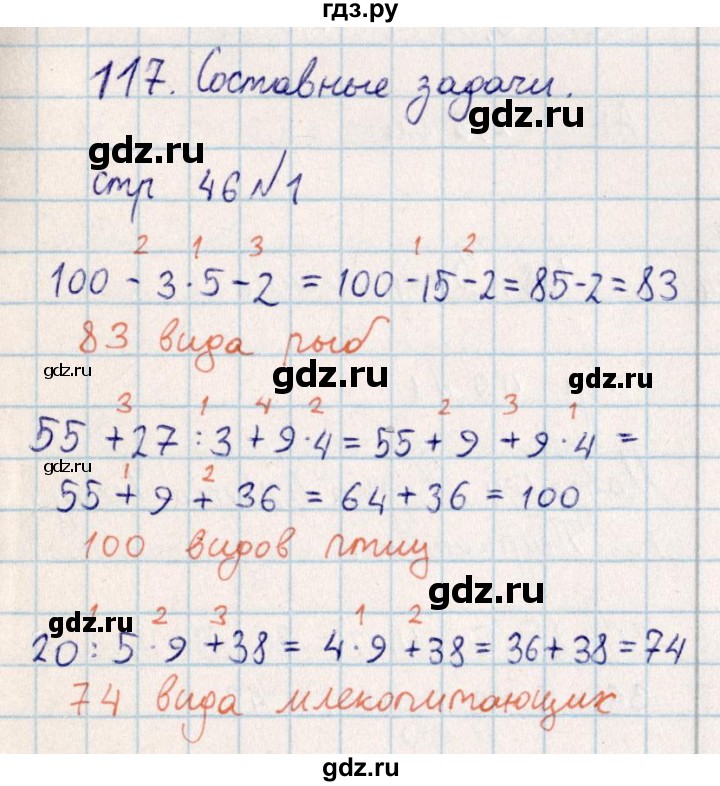 гдз.ру
117. Составные задачи.
gdz.ru
gdz.ru
стр 46 №1
2 1 3 1 2
100 - 3·5-2 = 100-15-2=85-2=83
83 вида рыб
gdz.ru gdz.ru gdz.ru
3 1 4 2 2 3 1
55 +27:3+9·4=55+9+9·4 =
gdz.ru
1 2
55+9+36 = 64+36=100
100 видов птиц
gdz.ru
gdz.ru
1 2 3 1 2
20:5·9+38= 4·9+38=36+38=74
74 вида млекопитающих
gdz.ru